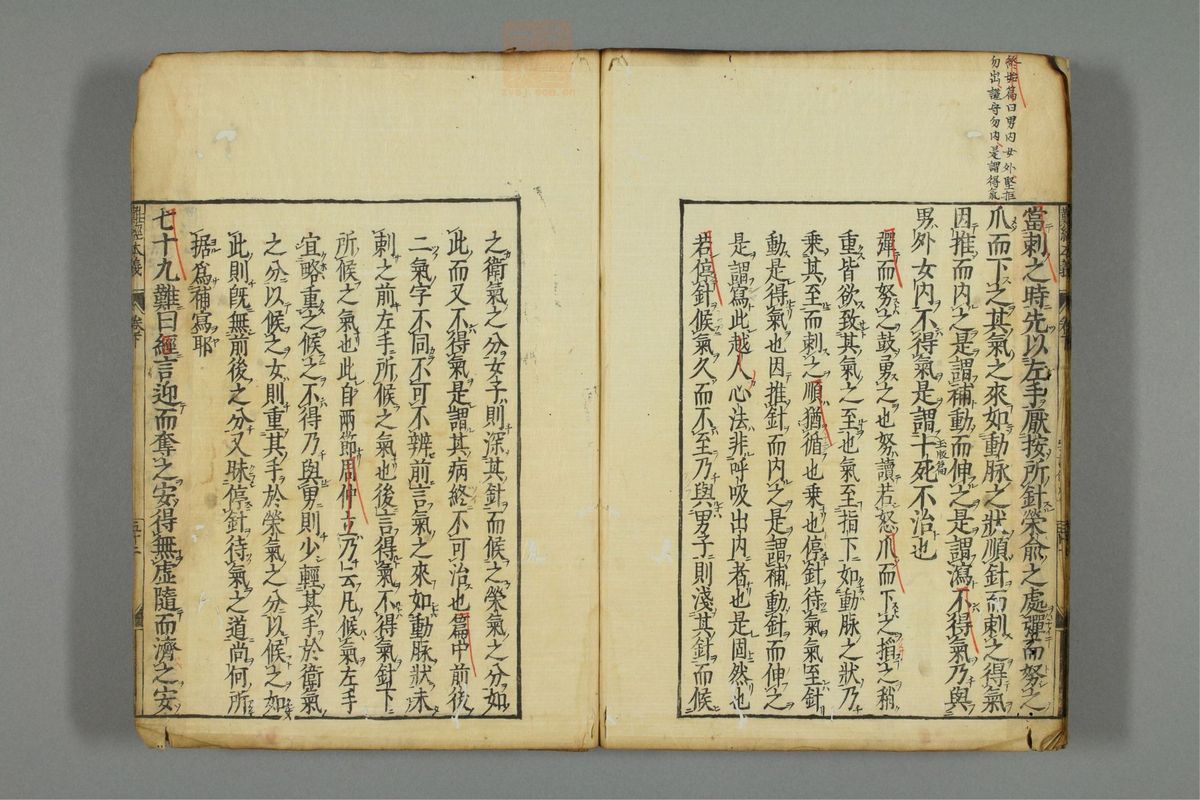 終始篇曰男內女外堅拒
勿出謹守勿內是謂得氣
當刺之時先以左手厭按所針滎兪之處彈而努之
爪而下之其氣之來如動脉之狀順針而刺之得氣
因推而內之是謂補動而伸之是謂瀉不得氣乃與
男外女內不得氣是謂十死不治也
玉版篇
彈而努之鼓勇之也努讀若怒爪而下之掐之稍
重皆欲致其氣之至也氣至指下如動脉之狀乃
乘其至而刺之順猶循也乗也停針待氣氣至針
動是得氣也因推針而內之是謂補動針而伸之
是謂瀉此越人心法非呼吸出內者也是固然也
若停針候氣久而不至乃與男子則淺其針而候
之衛氣之分女子則深其針而候之榮氣之分如
此而又不得氣是謂其病終不可治也篇中前後
二氣字不同不可不辨前言氣之來如動脉狀未
刺之前左手所候之氣也後言得氣不得氣針下
所候之氣也此自兩節周仲立乃云凡候氣左手
宜略重之候之不得乃與男則少輕其手於衛氣
之分以候之女則重其手於榮氣之分以候之如
此則旣無前後之分又昧停針待氣之道尚何所
据爲補瀉耶
七十九難曰經言迎而奪之安得無虛隨而濟之安
難經本義
卷下
五十二